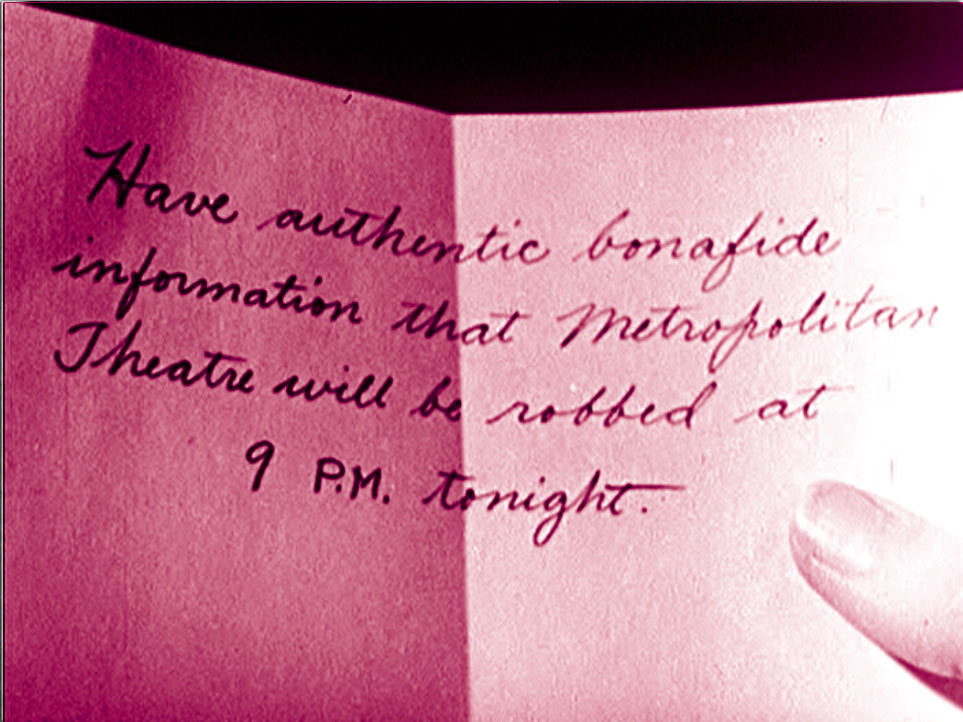 Have authentic bonafide
information that Metropolitan
Theatre will be robbed at
9 P.M. tonight.